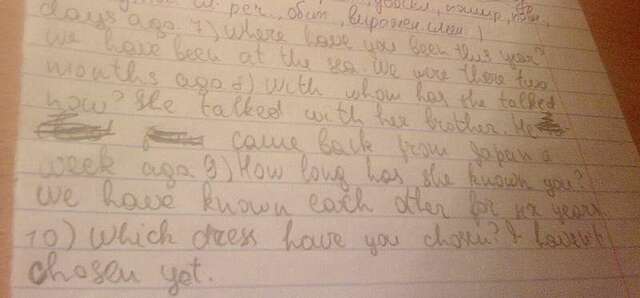 days ago. 7) Where have you been this year?
We have been at the sea. We were there two
months ago. 8) With whom has she talked
now? She talked with her brother. He
came back from Japan a
week ago. 9) How long has she known you?
We have known each other for six years
10) Which dress have you chosen? I haven't
chosen yet.